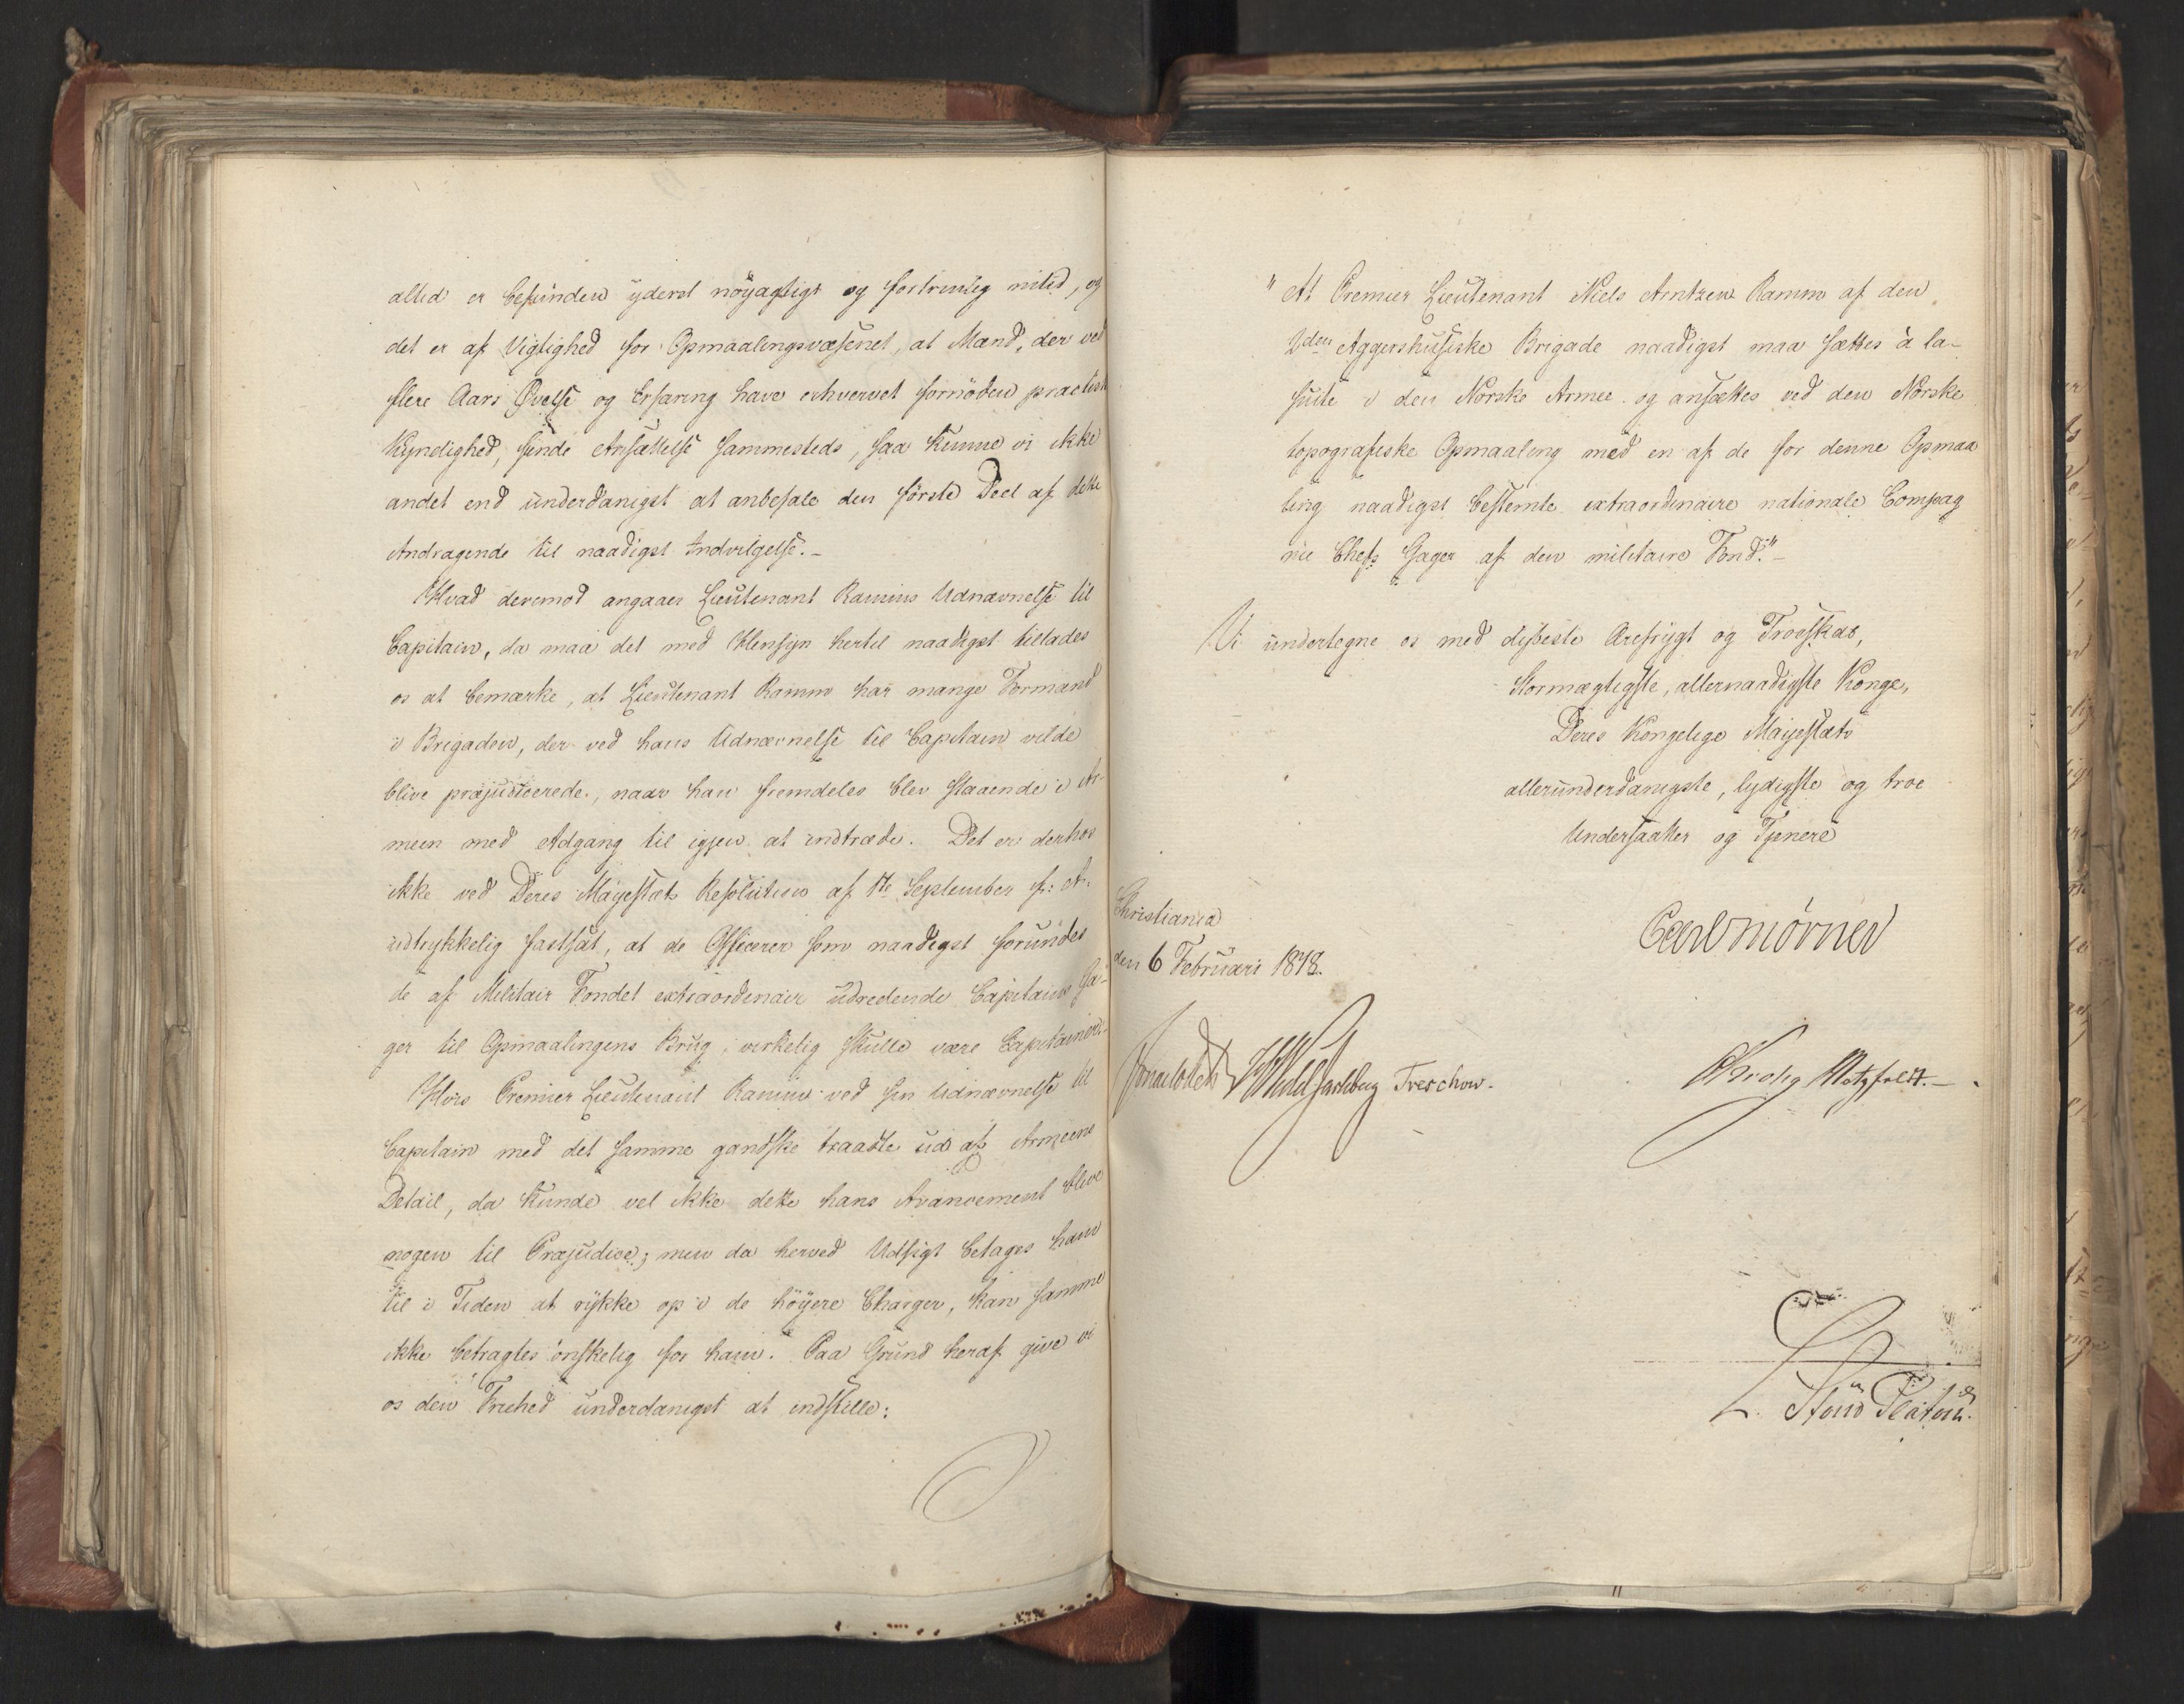 altid er befunden yderst nöyagtigt og fortrinlig nitid, og
det er af Vigtighed for Opmaalingsvæsenet, at Mænd, der ved
flere Aars Øvelse og Erfaring have erhvervet fornöden practisk
Kyndighed, finde Ansættelse sammesteds, saa kunne vi ikke
andet end underdanigst at anbefale den förste Deel af dette
Andragende til naadigst Indvilgelse.-
Hvad derimod angaaer Lieutenant Ramms Udnævnelse til
Capitain, da maa det med Hensyn hertil naadigst tillades
os at bemærke, at Lieutenant Ramm har mange Formænd
i Brigaden, der ved hans Udnævnelse til Capitain vilde
blive præjudicerede, naar han fremdeles blev staaende i Ar-
meen med Adgang til igjen at indtræde. Det er derhos
ikke ved Deres Mayestæts Resolution af 1te September f: A:
udtrykkelig fastsat, at de Officerer som naadigst forundes
de af Militair Fondet extraordinair udredende Capitains Ga-
ger til Opmaalingens Brug, virkelig skulle være Capitainer.-
Hvis Premier Lieutenant Ramm ved sin Udnævnelse til
Capitain med det samme gandske traadte ud af Armeens
Detail, da kunde vel ikke dette hans Avancement blive
nogen til Præjudice; men da herved Udsigt betages ham
til i Tiden at rykke op i de höyere Charger, kan samme
ikke betragtes önskelig for ham. Paa Grund heraf give vi
os den Friehed underdanigst at indstille:
"At Premier Lieutenant Niels Arntzen Ramm af den
2den Aggershusiske Brigade naadigst maa sættes à la-
suite i den Norske Armee og ansættes ved den Norske
topografiske Opmaaling med en af de for denne Opmaa
ling naadigst bestemte extraordinaire nationale Compag
nie Chefs Gager af den militaire Fond."-
Vi undertegne os med dybeste Ærefrygt og Troeskab,
Stormægtigste, allernaadigste Konge,
Deres Kongelige Mayestæts
allerunderdanigste, lydigste og troe
Undersaatter og Tjenere
Christiania
den 6 Februari 1818.
Carl Mörner
Sommerfeldt HWedel Jarlsberg Treschow.
CKrohg Motzfeldt.-
L. v. Stoud Platou.